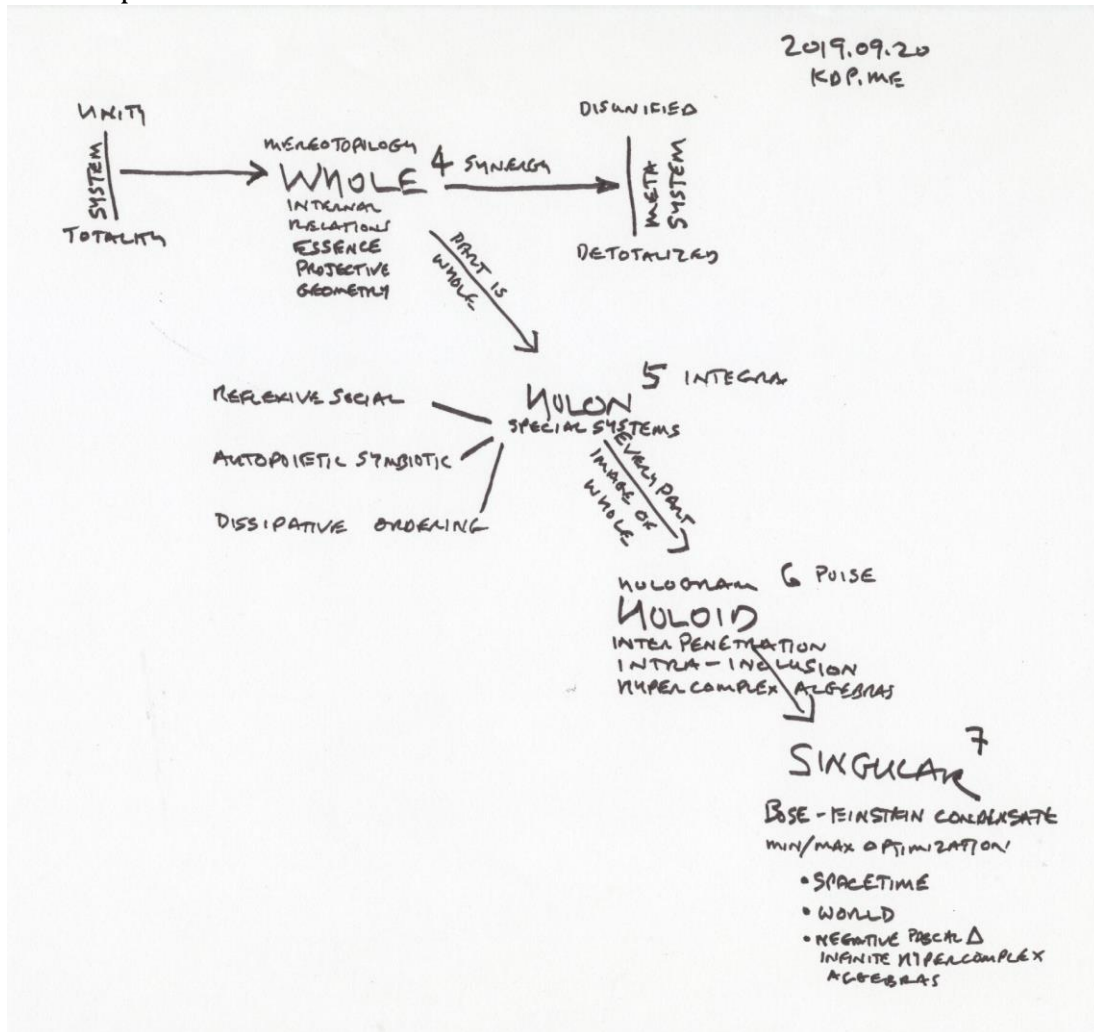 2019.09.20
KDP.ME
UNITY
SYSTEM
TOTALITY
MEREOTOPILOGY
WHOLE 4 SYNERGY
INTERNAL
RELATIONS
ESSENCE
PROJECTIVE
GEOMETRY
DISUNIFIED
META
SYSTEM
DETOTALIZED
PART IS
WHOLE
5 INTEGRA
HOLON
SPECIAL SYSTEMS
REFLEXIVE SOCIAL
AUTOPOIETIC SYMBIOTIC
DISSIPATIVE ORDERING
EVERY PART
IMAGE OF
WHOLE
HOLOGRAM 6 POISE
HOLOID
INTERPENETRATION
INTRA-INCLUSION
HYPERCOMPLEX ALGEBRAS
SINGULAR 7
BOSE-EINSTEIN CONDENSATE
MIN/MAX OPTIMIZATION
• SPACETIME
• WORLD
• NEGATIVE PASCAL Δ
INFINITE HYPERCOMPLEX
ALGEBRAS